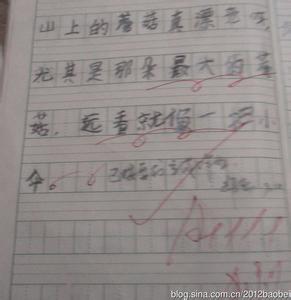 山上的蘑菇真漂亮呀,
尤其是那朵最大的蘑
菇,远看就像一把小
伞。
blog.sina.com.cn/2012baobei